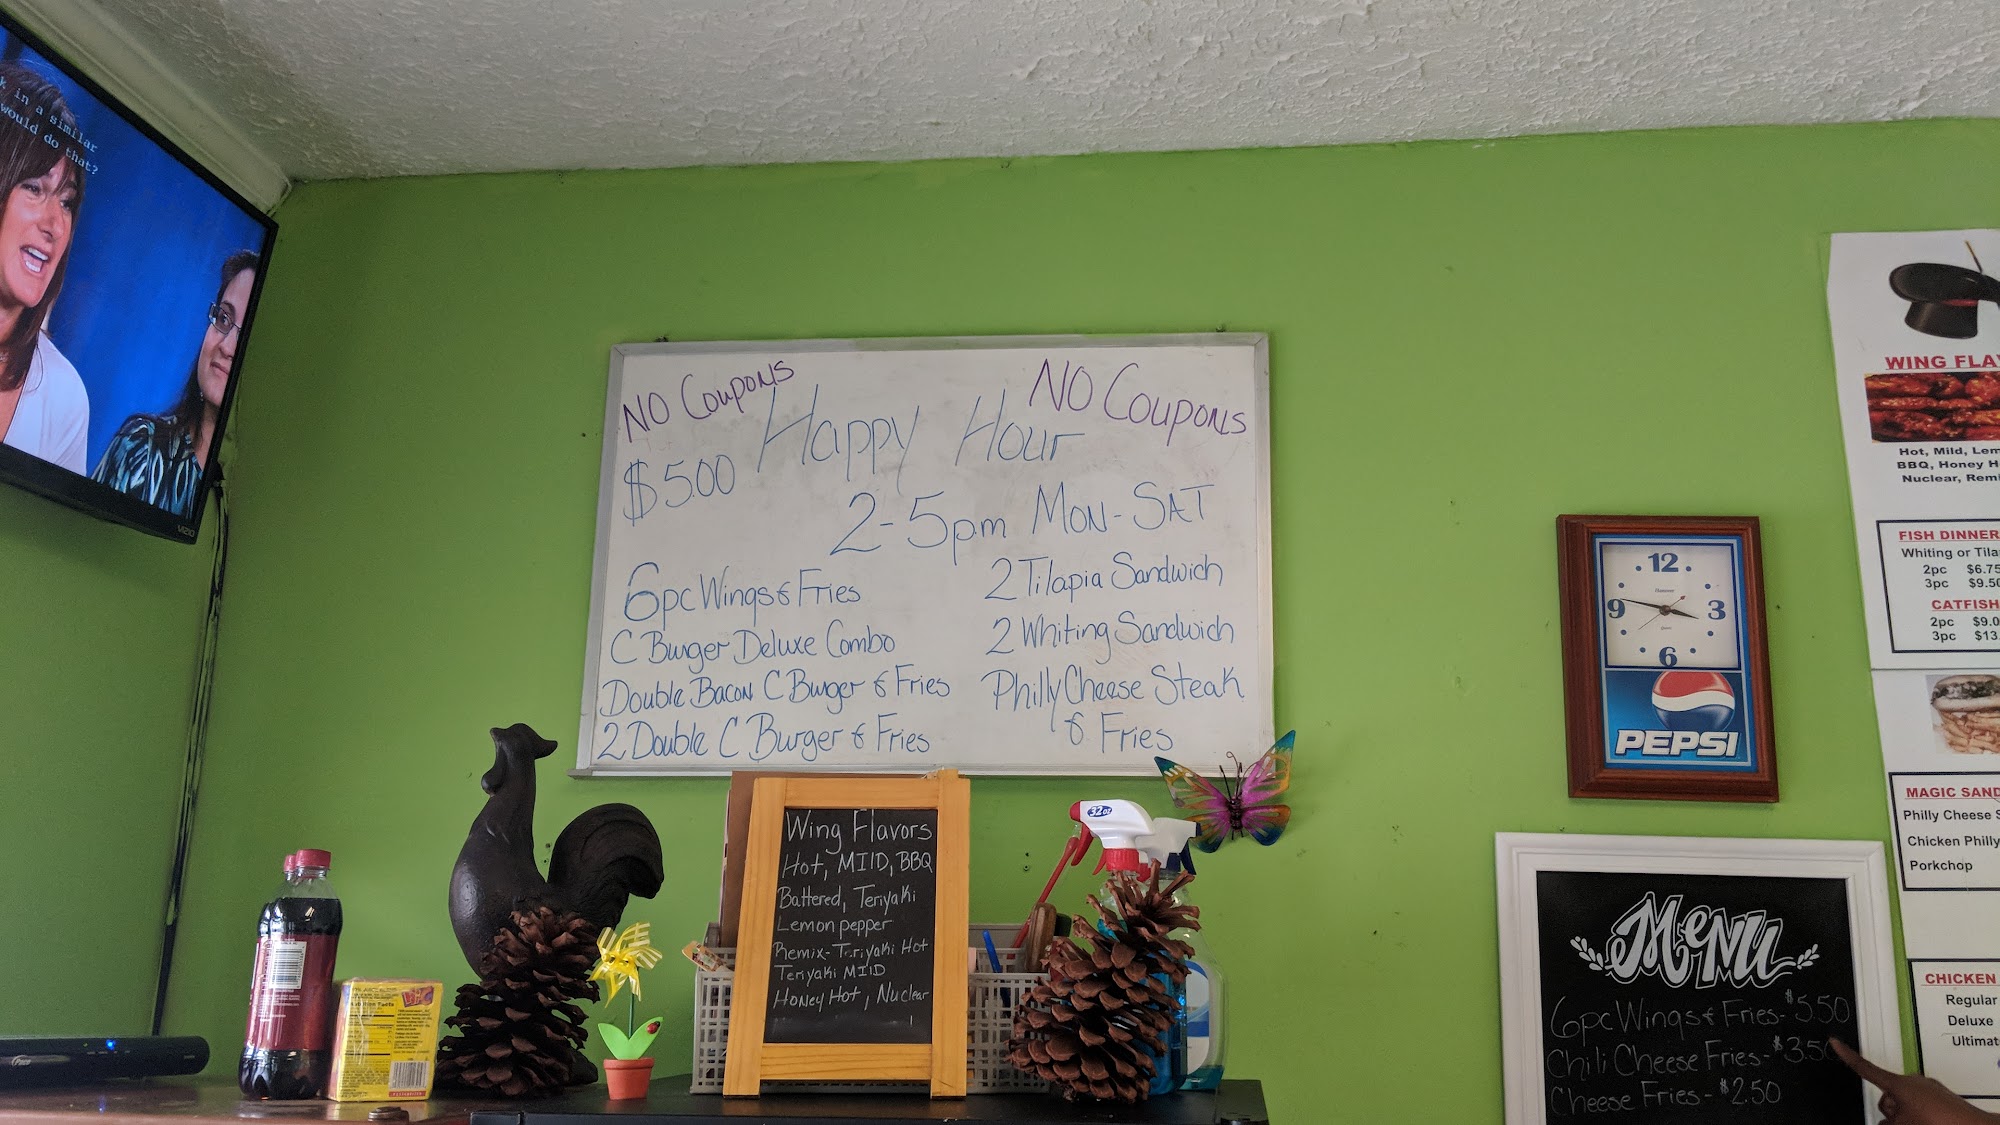 k in a similar
would do that?
VIZIO
NO Coupons
NO Coupons
Happy Hour
$5.00
2-5pm MON-SAT
6pc Wings & Fries
C Burger Deluxe Combo
Double Bacon C Burger & Fries
2 Double C Burger & Fries
2 Tilapia Sandwich
2 Whiting Sandwich
Philly Cheese Steak
& Fries
Wing Flavors
Hot, MIlD, BBQ
Battered, Teriyaki
Lemon pepper
Remix-Teriyaki Hot
Teriyaki MIlD
Honey Hot, Nuclear
32oz
12
9 3
6
PEPSI
Menu
6pc Wings & Fries- $5.50
Chili Cheese Fries- $3.50
Cheese Fries- $2.50
WING FLA
Hot, Mild, Lem
BBQ, Honey H
Nuclear, Remi
FISH DINNER
Whiting or Tila
2pc $6.75
3pc $9.50
CATFISH
2pc $9.0
3pc $13.
MAGIC SAND
Philly Cheese S
Chicken Philly
Porkchop
CHICKEN
Regular
Deluxe
Ultimat